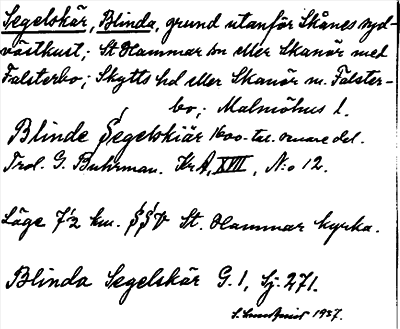 Segelskär, Blinda, grund utanför Skånes syd-
västkust; St Hammar sn eller Skanör med
Falsterbo; Skytts hd eller Skanör m. Falster-
bo; Malmöhus l.
Blinde Segelskiär 1600-tal. senare del.
Trol. G. Buhrman. KrA, XVIII, N:o 12.
Läge 7½ km. SSV St. Hammar kyrka.
Blinda Segelskär G. 1, Sj. 271.
1957.